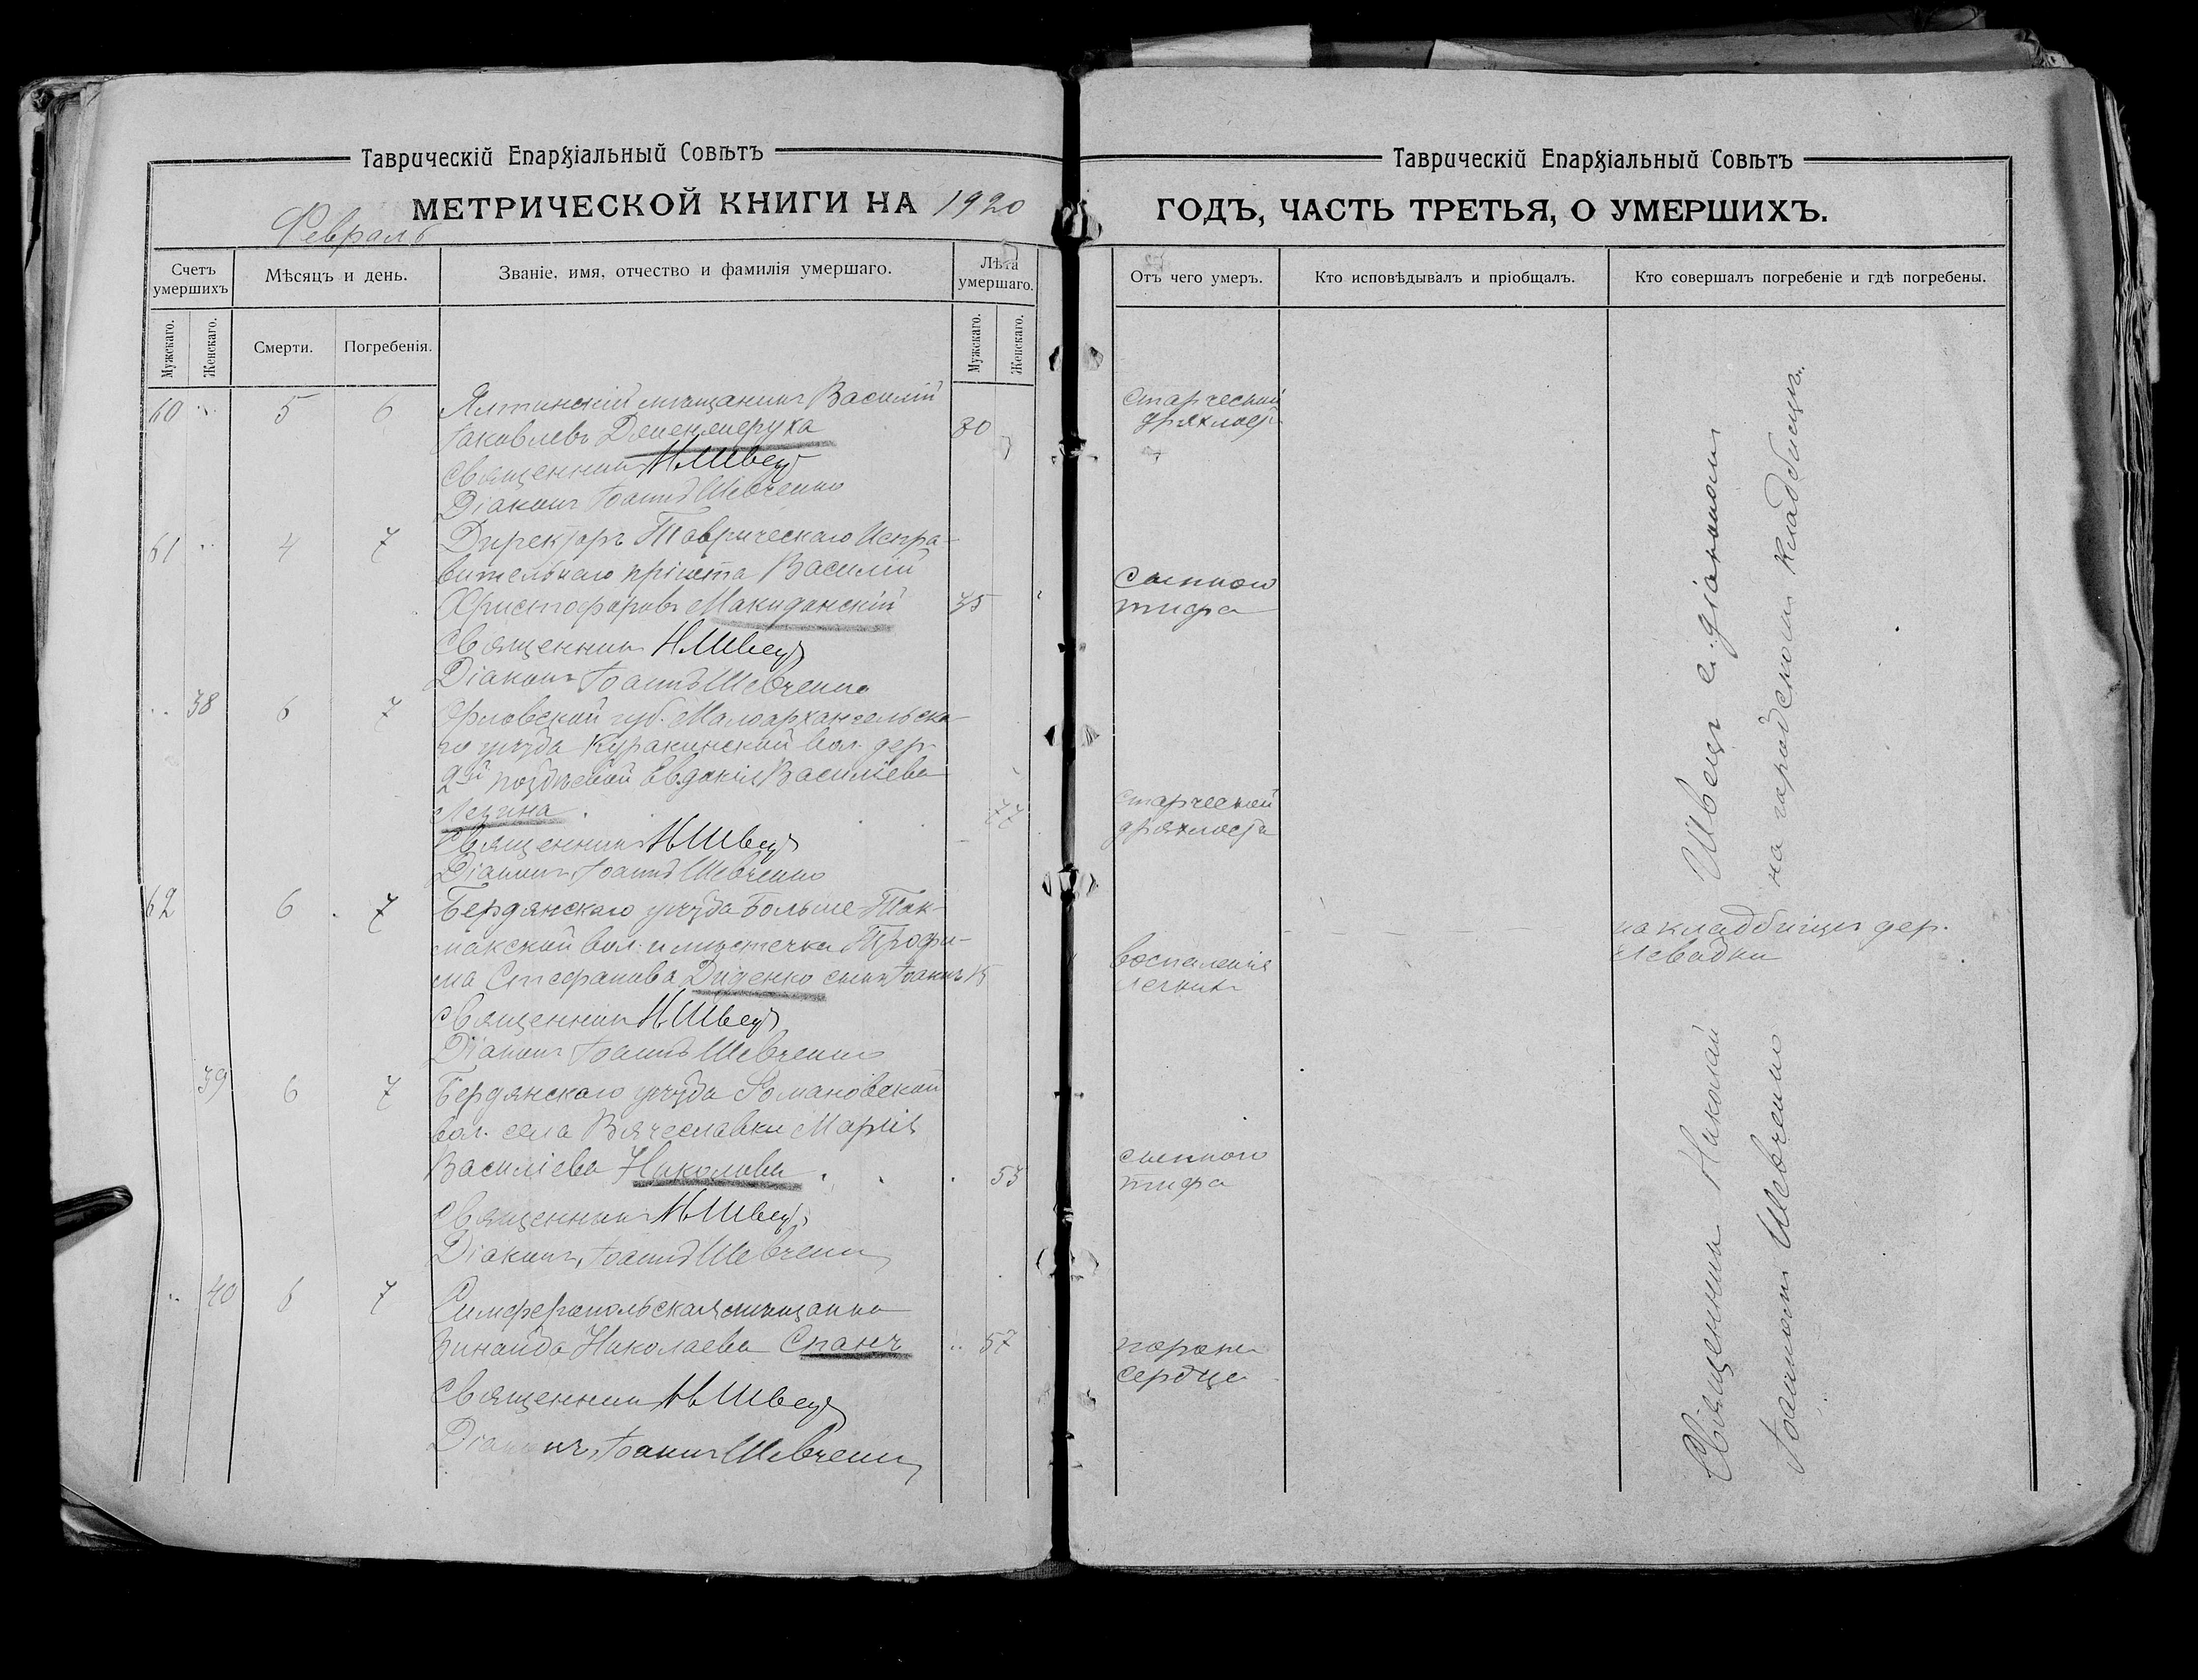 Таврическій Епархіальный Совѣтъ
МЕТРИЧЕСКОЙ КНИГИ НА 1920
Февраль
Счетъ умершихъ
Мѣсяцъ и день.
Званіе, имя, отчество и фамилія умершаго.
Лѣта умершаго.
Мужскаго.
Женскаго.
Смерти.
Погребенія.
Мужскаго.
Женскаго.
60 5 6 Ялтинскій мѣщанинъ Василій
Іаковлевъ 80
Священникъ Н Швецъ
Діаконъ Іоаннъ Шевченко
61 4 7 Директоръ Таврическаго Испра-
вительнаго пріюта Василій
Христофоровъ Макидонскій 35
Священникъ Н Швецъ
Діаконъ Іоаннъ Шевченко
38 6 7 Орловской губ. Малоархангельска-
го уѣзда Куракинской вол. дер.
2й Евдокія Васильева
Лезина 77
Священникъ Н Швецъ
Діаконъ Іоаннъ Шевченко
62 6 7 Бердянскаго уѣзда Больше-Ток-
макской вол. и мѣстечка Трофи-
ма Стефанова Диденко сынъ Іоаннъ 15
Священникъ Н Швецъ
Діаконъ Іоаннъ Шевченко
39 6 7 Бердянскаго уѣзда Романовской
вол. села Вячеславки Марія
Василіева Николова 53
Священникъ Н Швецъ
Діаконъ Іоаннъ Шевченко
40 6 7 Симферопольская мѣщанка
Зинаида Николаева Спанъ 57
Священникъ Н Швецъ
Діаконъ Іоаннъ Шевченко
Таврическій Епархіальный Совѣтъ
ГОДЪ, ЧАСТЬ ТРЕТЬЯ, О УМЕРШИХЪ.
Отъ чего умеръ.
Кто исповѣдывалъ и пріобщалъ.
Кто совершалъ погребеніе и гдѣ погребены.
старческой
дряхлости
сыпного
тифа
старческой
дряхлости
воспаленія
легкихъ
сыпного
тифа
порока
сердца
на кладбищѣ дер.
Левадки
Священникъ Николай Швецъ с діакономъ
Іоанномъ Шевченко на городскомъ кладбищѣ.